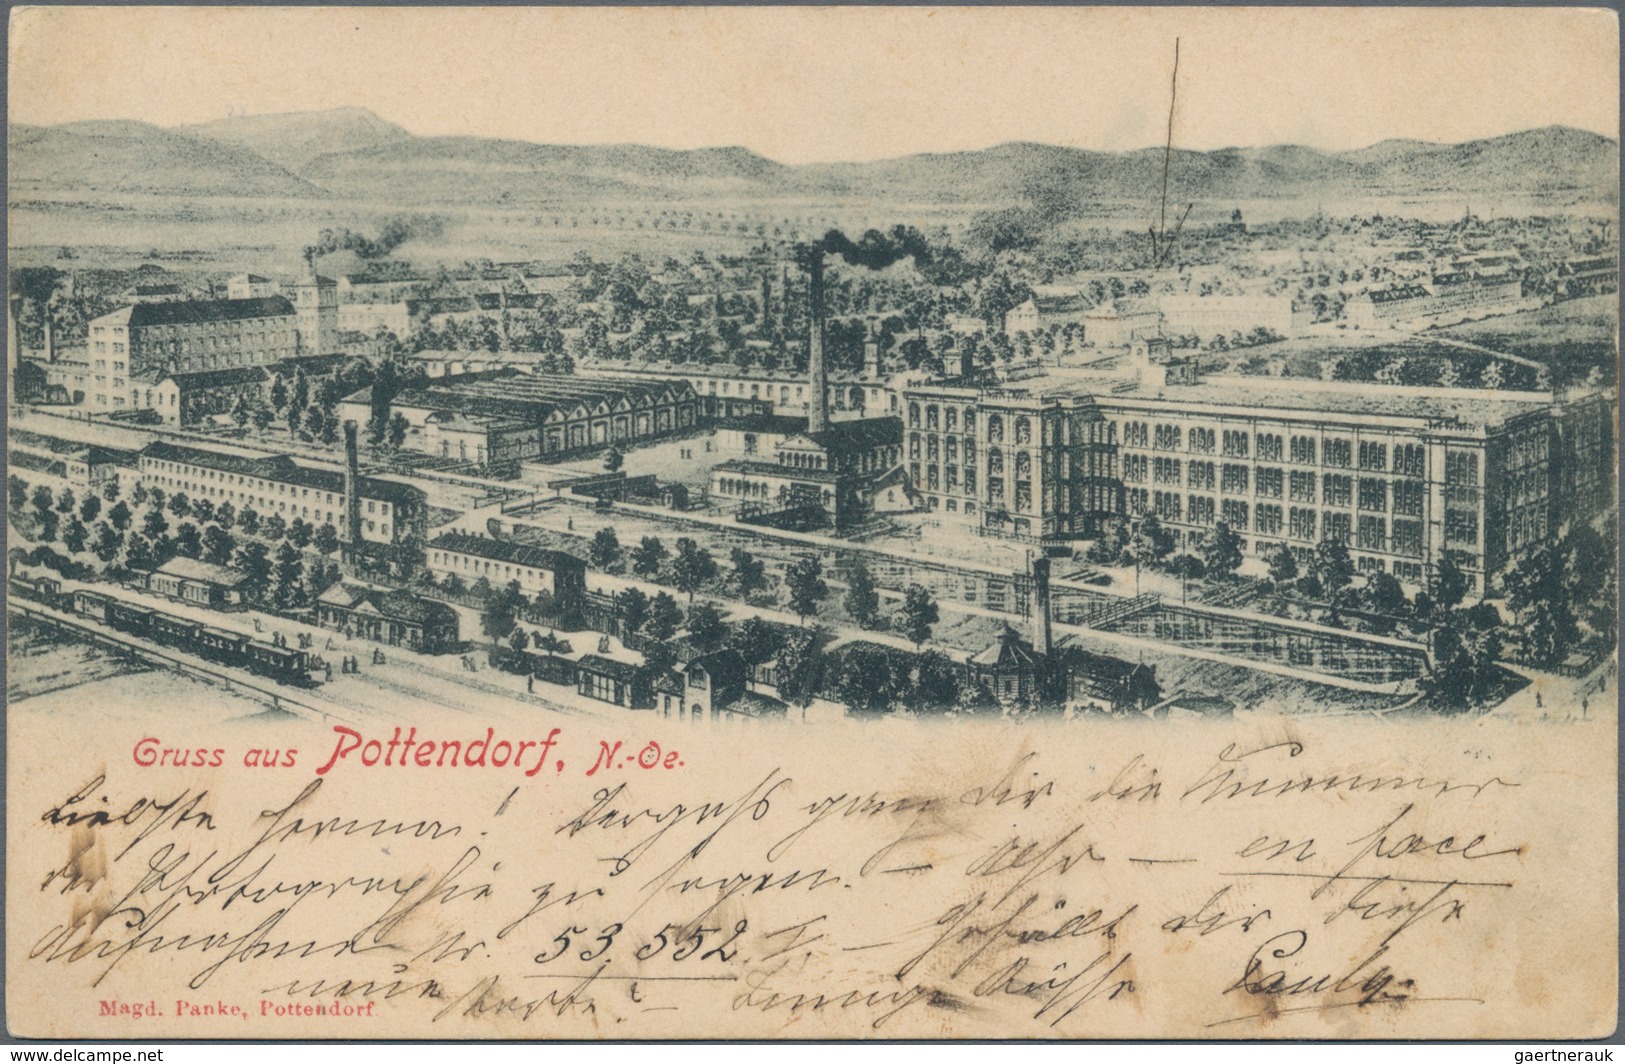 Gruss aus Pottendorf, N.-Oe.
Liebste Herma! Vergaß ganz dir die Nummer
der Photographie zu sagen. – Also – en face
Aufnahme Nr. 53.552. I. – Gefällt dir diese
neue Karte? – Innige Küsse Pauly.
Magd. Panke, Pottendorf
www.delcampe.net
gaertnerauk